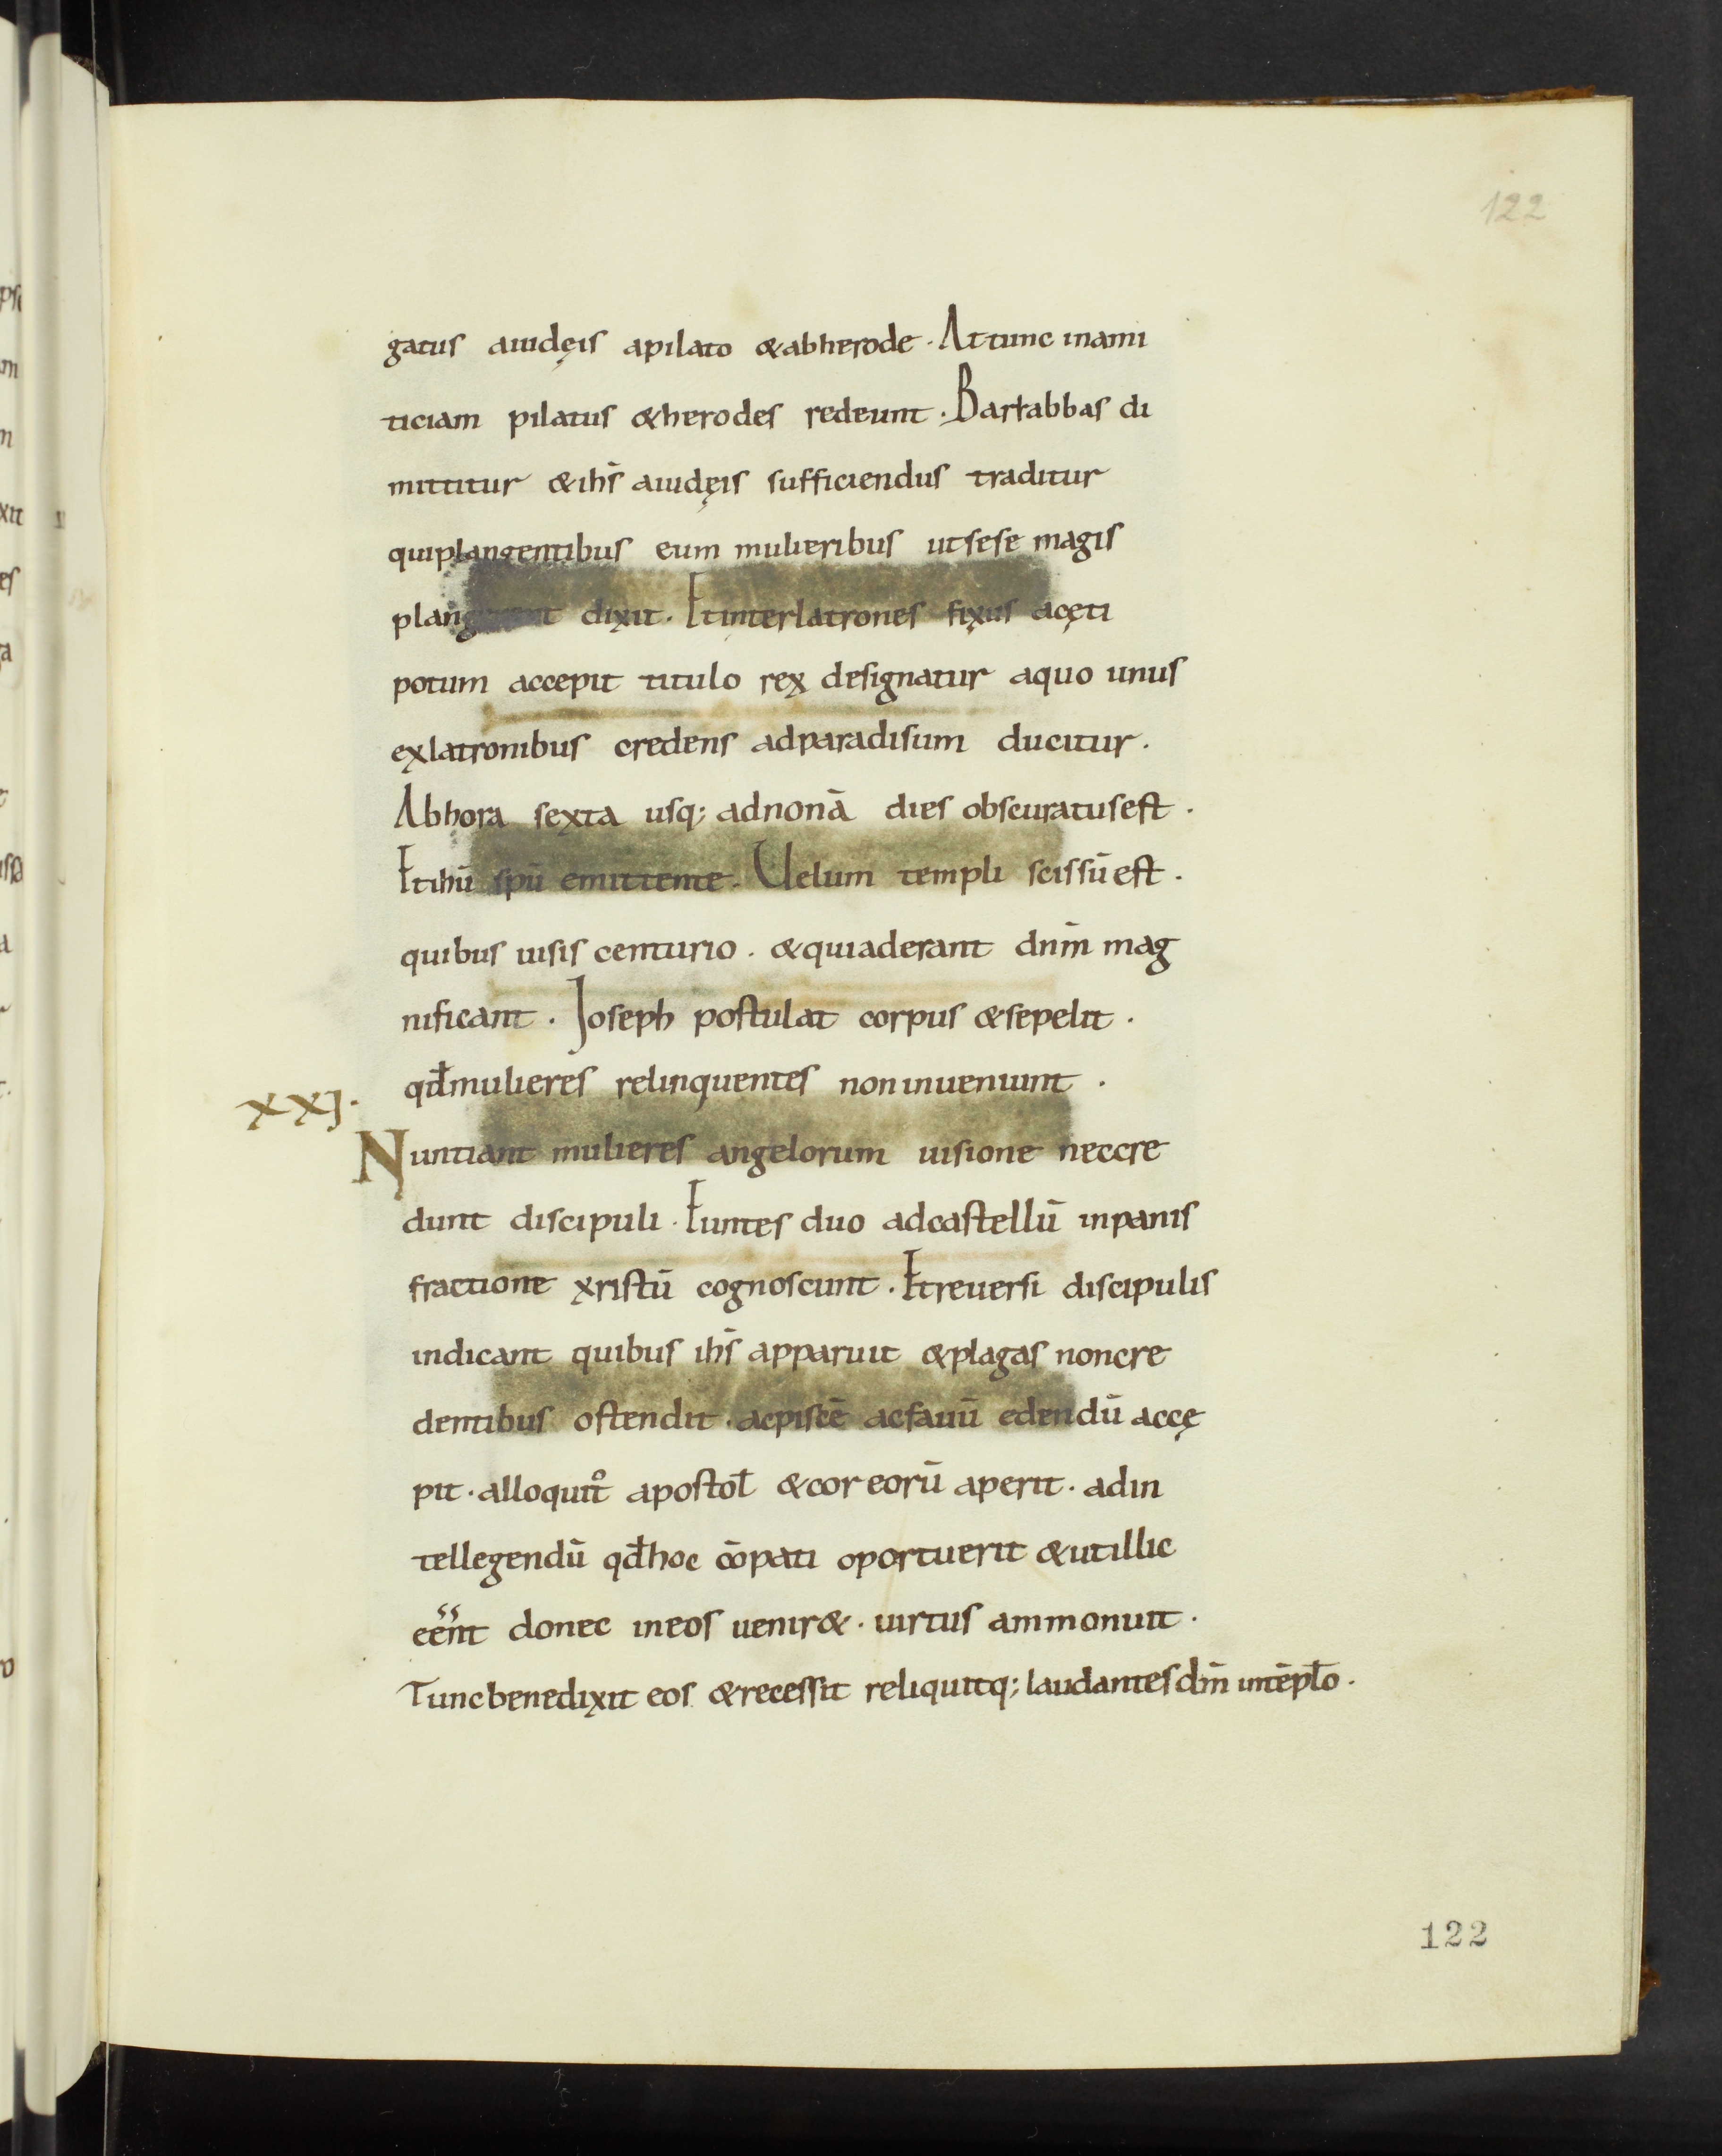 122
gatus aiudęis apilato &abherode. At tunc inami
ticiam pilatus &herodes redeunt. Barrabbas di
mittitur &ihs̄ aiudęis sufficiendus traditur
quiplangentibus eum mulieribus utsese magis
plangerent dixit. Etinterlatrones fixus acęti
potum accepit titulo rex designatur aquo unus
exlatronibus credens adparadisum ducitur.
Abhora sexta usq; adnonā dies obscuratusest.
Etihū spū emittente. Uelum templi scissūest.
quibus uisis centurio. &quiaderant dnm̄ mag
nificant. Joseph postulat corpus &sepelit.
qđmulieres relinquentes noninueniunt.
XXI.
Nuntiant mulieres angelorum uisione neccre
dunt discipuli. Euntes duo adcastellū inpanis
fractione xristū cognoscunt. Etreuersi discipulis
indicant quibus ihs̄ apparuit &plagas noncre
dentibus ostendit. acpiscē acfauū edendū accę
pit. alloquit᷎ apostoł &cor eorū aperit. adin
tellegendū qđhoc c̄opati oportuerit &utillic
eēnt donec ineos uenir&. uirtus ammonuit.
Tuncbenedixit eos &recessit reliquitq; laudantes dm̄ intēpło.
122